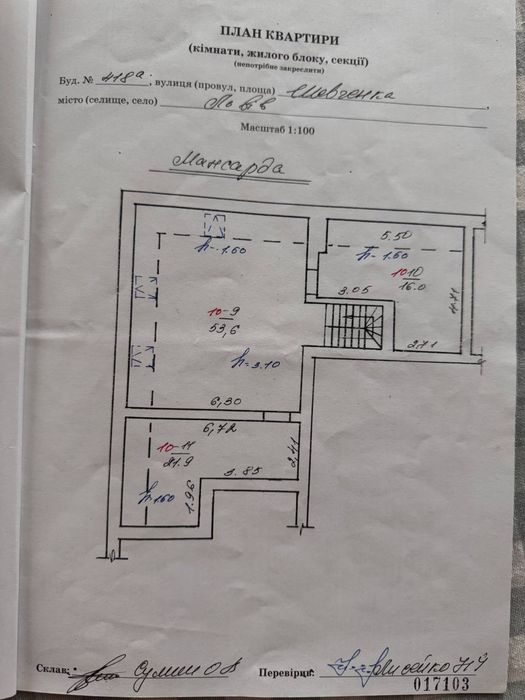 ПЛАН КВАРТИРИ
(кімнати, жилого блоку, секції)
(непотрібне закреслити)
Буд. № 418а, вулиця (провул, площа) Шевченка,
місто (селище, село) Львів
Масштаб 1:100
Мансарда
h-1.60
5.50
h-1.60
10-10
16.0
3.05
4.71
10-9
53,6
2.71
h=3.10
6,30
6,72
10-11
21.9
2,41
3.85
h-160
1.96
Склав: Сулим О
Перевірив:
017103